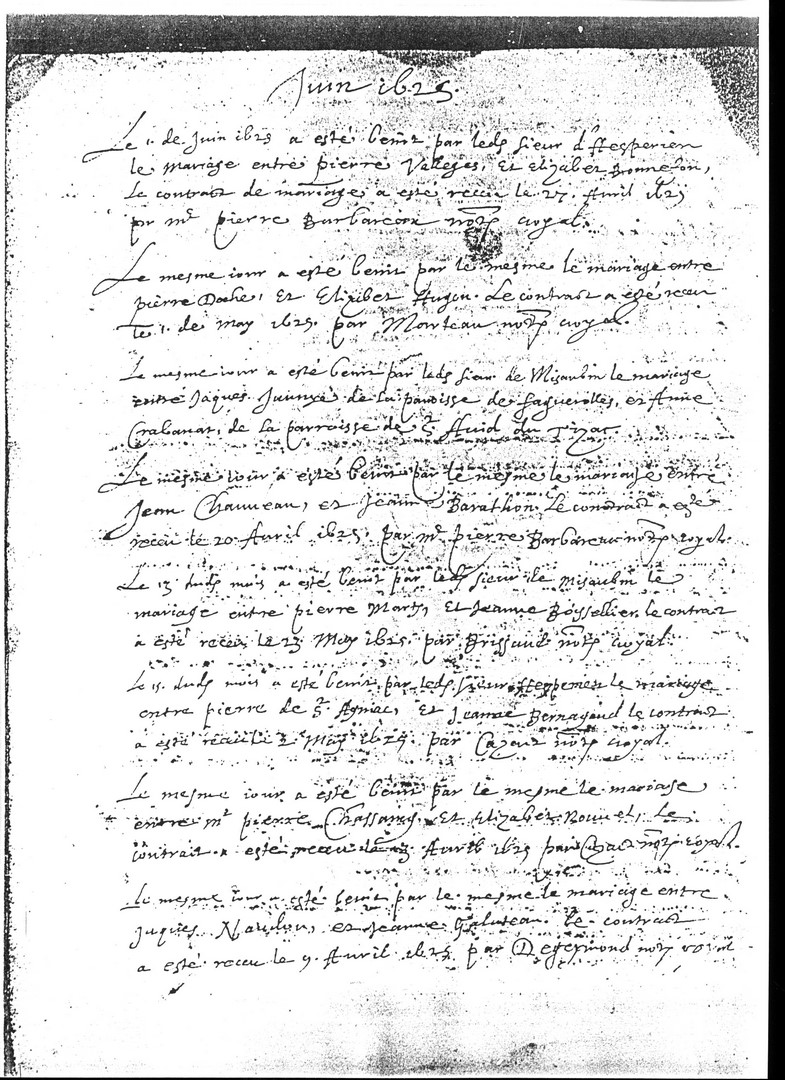 Juin 1625
Le 1. de Juin 1625 a esté benit par leds sieur d'Hesperien
le mariage entre pierre Valleges, Et Elizabet Bonnefon,
Le contract de mariage a esté receu le 27. Avril 1625
pr mr. pierre Barbareau nore royal.
Le mesme iour a esté benit par le mesme le mariage entre
pierre Doche, Et Elizibet Hugon. Le contract a esté receu
le 1. de may 1625. par Morteau nore royal.
Le mesme iour a esté benit par leds sieur de Misaubin le mariage
entre Jaques de la paroisse de et Anne
de la parroisse de St. Avid du Tizac.
Le mesme iour a esté benit par le mesme le mariage entre
Jean Chauveau, et Jeanne Barathon. Le contract a esté
receu le 20. Avril 1625. par mr. pierre Barbareau nore royal.
Le 13 duds mois a esté benit par leds sieur de Misaubin le
mariage entre pierre Marty, Et Jeanne Boyssellier. le contract
a esté receu le 23 May 1625. par Brissaud nore royal.
Le 15. duds mois a esté benit par leds sieur le mariage
entre pierre de St. Agniac, Et Jeanne Bernagaud le contract
a esté receu le 2 May 1625. par nore royal.
Le mesme iour a esté benit par le mesme le mariage
entre mr pierre Et Elizabet Rouvet, Le
contrait a esté receu le Avril 1625 par nore royal.
Le mesme iour a esté benit par le mesme le mariage entre
Jaques Naudon, et Jeanne Galuteau. le contract
a esté receu le 9. Avril 1625 par nore royal